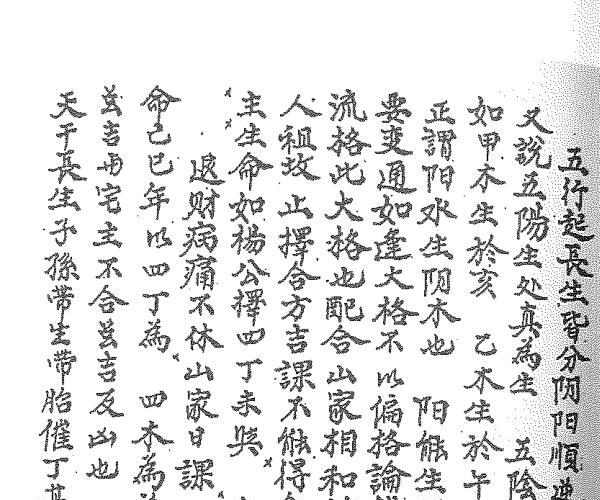 五行起長生皆分阴阳順
又説五陽生处真為生 五陰
如甲木生於亥 乙木生於午
正謂阳水生阴木也 阳能生
要变通如逢大格不以偏格論
流格此大格也配合山家相和
人祖坟止擇合方吉課不能得
主生命如楊公擇四丁未
退财病痛不休山家日課
命己巳年以四丁為 四木為
玄吉由宅主不合玄吉反凶也
天干長生子孫帶生帶胎催丁